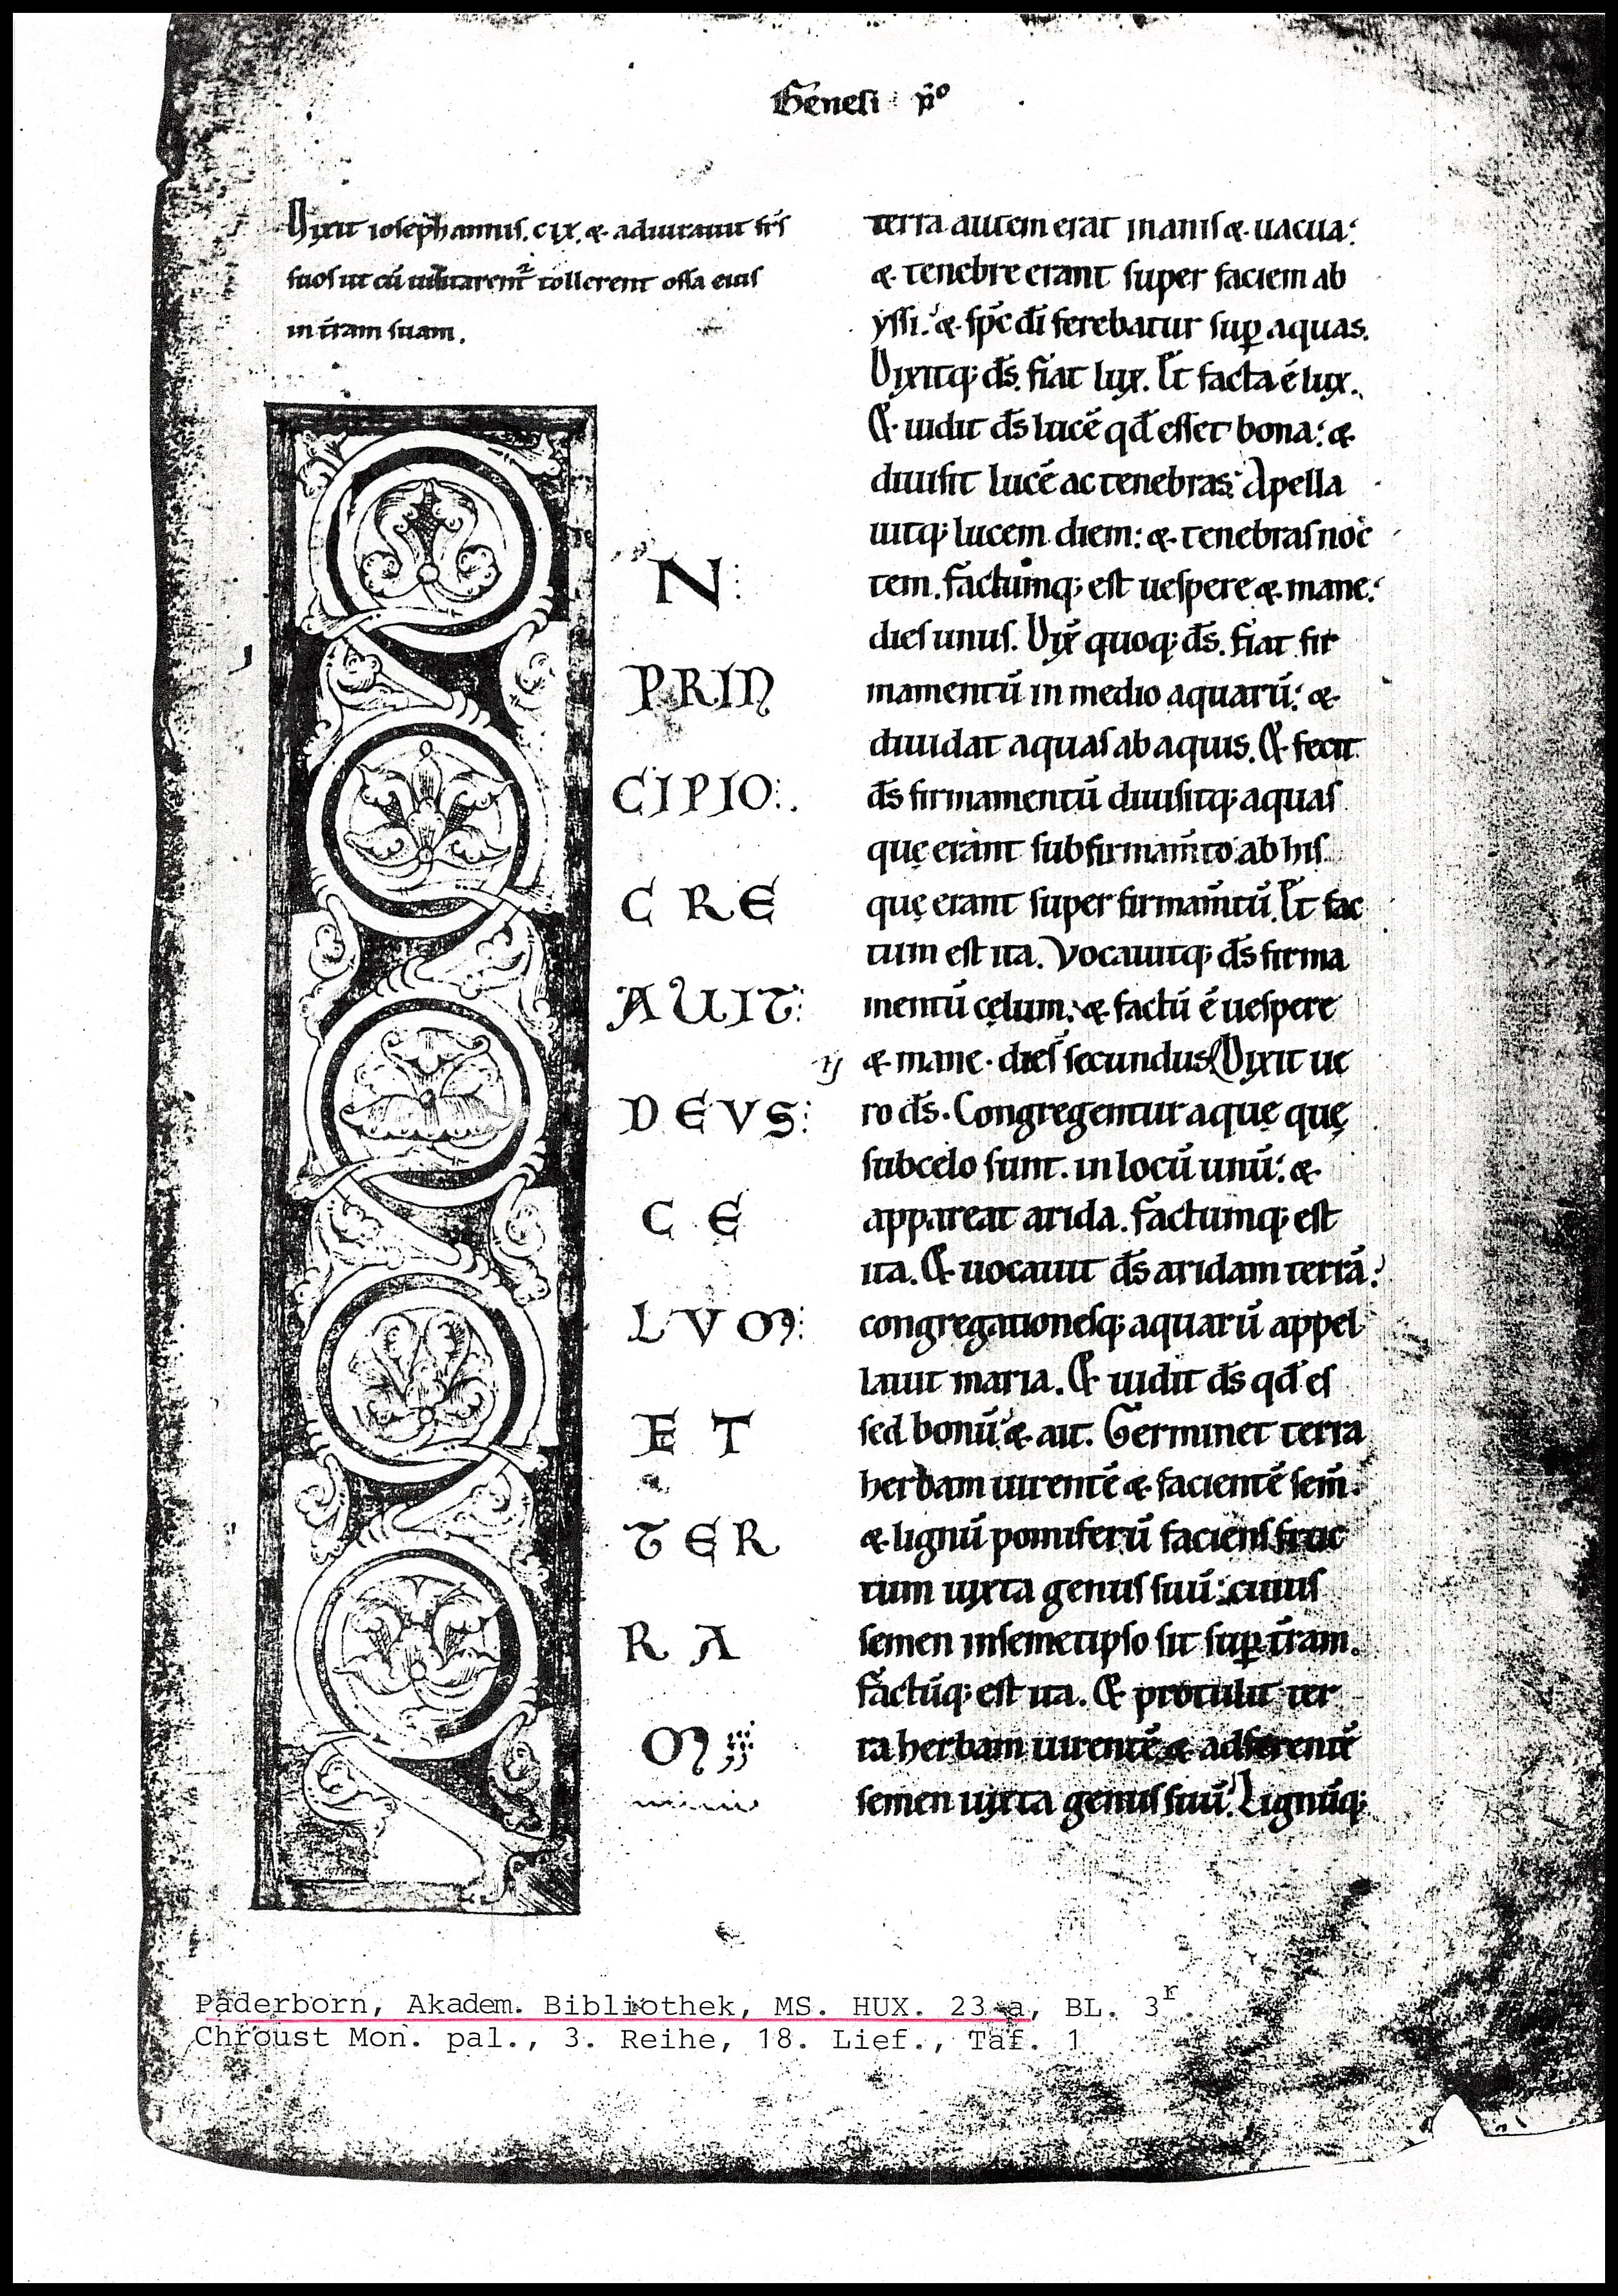 Genesi p̄º
Uixit ioseph annis. cix. & adiurauit fr̄s
suos ut cū uisitarent᷑ tollerent ossa eius
in t̄ram suam.
N:
PRIN
CIPIO:.
C RE
AUIT:
DEVS:
C E
L V M:
E T
T E R
R A
M
terra autem erat inanis & uacua:
& tenebre erant super faciem ab
yssi: & sp̄c dī ferebatur suꝑ aquas.
Dixitq; d̄s. fiat lux. Et facta ē lux.
& uidit d̄s lucē qd̄ esset bona: &
diuisit lucē ac tenebras: Apella
uitq; lucem diem: & tenebras noc
tem. factumq; est uespere & mane:
dies unus. Dix̄ quoq; d̄s. fiat fir
mamentū in medio aquarū: &
diuidat aquas ab aquis. & fecit
d̄s firmamentū diuisitq; aquas
quę erant sub firmam̄to ab his
quę erant super firmam̄tū. Et fac
tum est ita. Vocauitq; d̄s firma
mentū cęlum: & factū ē uespere
ij & mane. dies secundus Dixit ue
ro d̄s. Congregentur aquę quę
sub celo sunt. in locū unū: &
appareat arida. factumq; est
ita. & uocauit d̄s aridam terrā:
congregationesq; aquarū appel
lauit maria. & uidit d̄s qd̄ es
sed bonū: & ait. Germinet terra
herbam uirentē & facientē sem̄.
& lignū pomiferū faciens fruc
tum iuxta genus suū: cuius
semen in semetipso sit suꝑ t̄ram.
factūq; est ita. & protulit ter
ra herbam uirentē & adferentē
semen iuxta genus suū: Lignūq;
Paderborn, Akadem. Bibliothek, MS. HUX. 23 a, BL. 3r.
Chroust Mon. pal., 3. Reihe, 18. Lief., Taf. 1